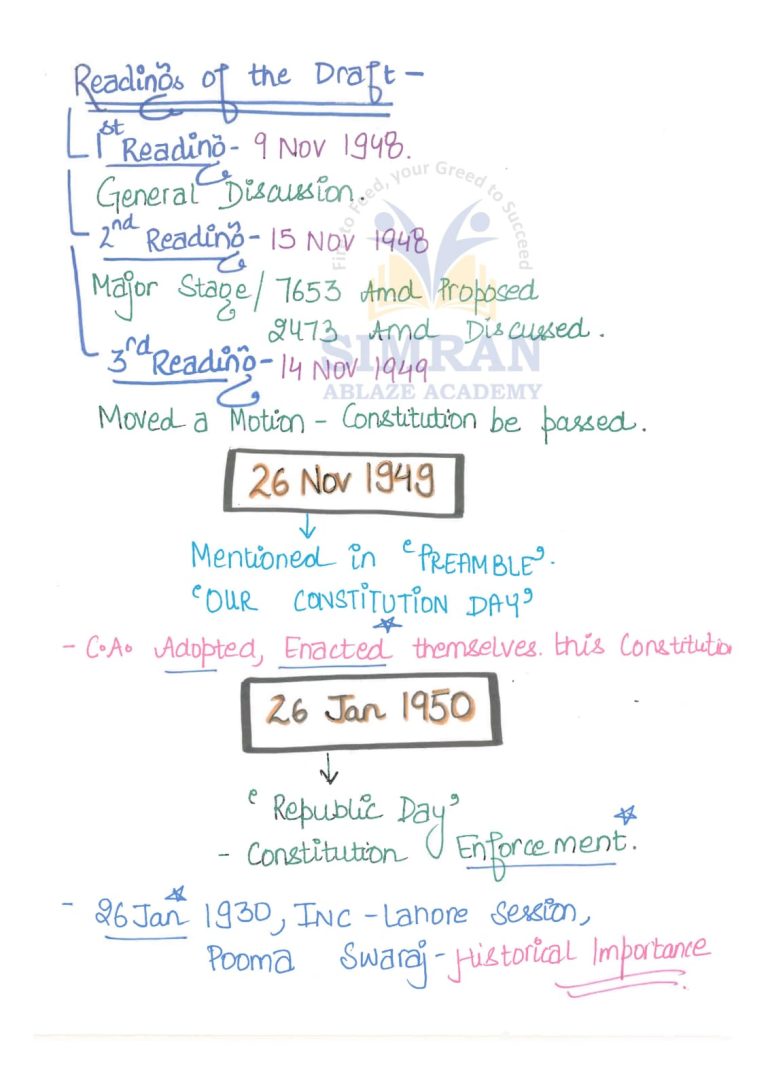 Readings of the Draft –
1st Reading - 9 Nov 1948.
General Discussion.
2nd Reading - 15 Nov 1948
Major Stage / 7653 Amd Proposed
2473 Amd Discussed.
3rd Reading - 14 Nov 1949
Moved a Motion - Constitution be passed.
26 Nov 1949
Mentioned in 'PREAMBLE'.
'OUR CONSTITUTION DAY'
- C.A. Adopted, Enacted themselves. this Constitutio
26 Jan 1950
'Republic Day'
- Constitution Enforcement.
- 26 Jan 1930, INC - Lahore Session,
Poorna Swaraj - Historical Importance
First to Feed, your Greed to Succeed
SIMRAN
ABLAZE ACADEMY